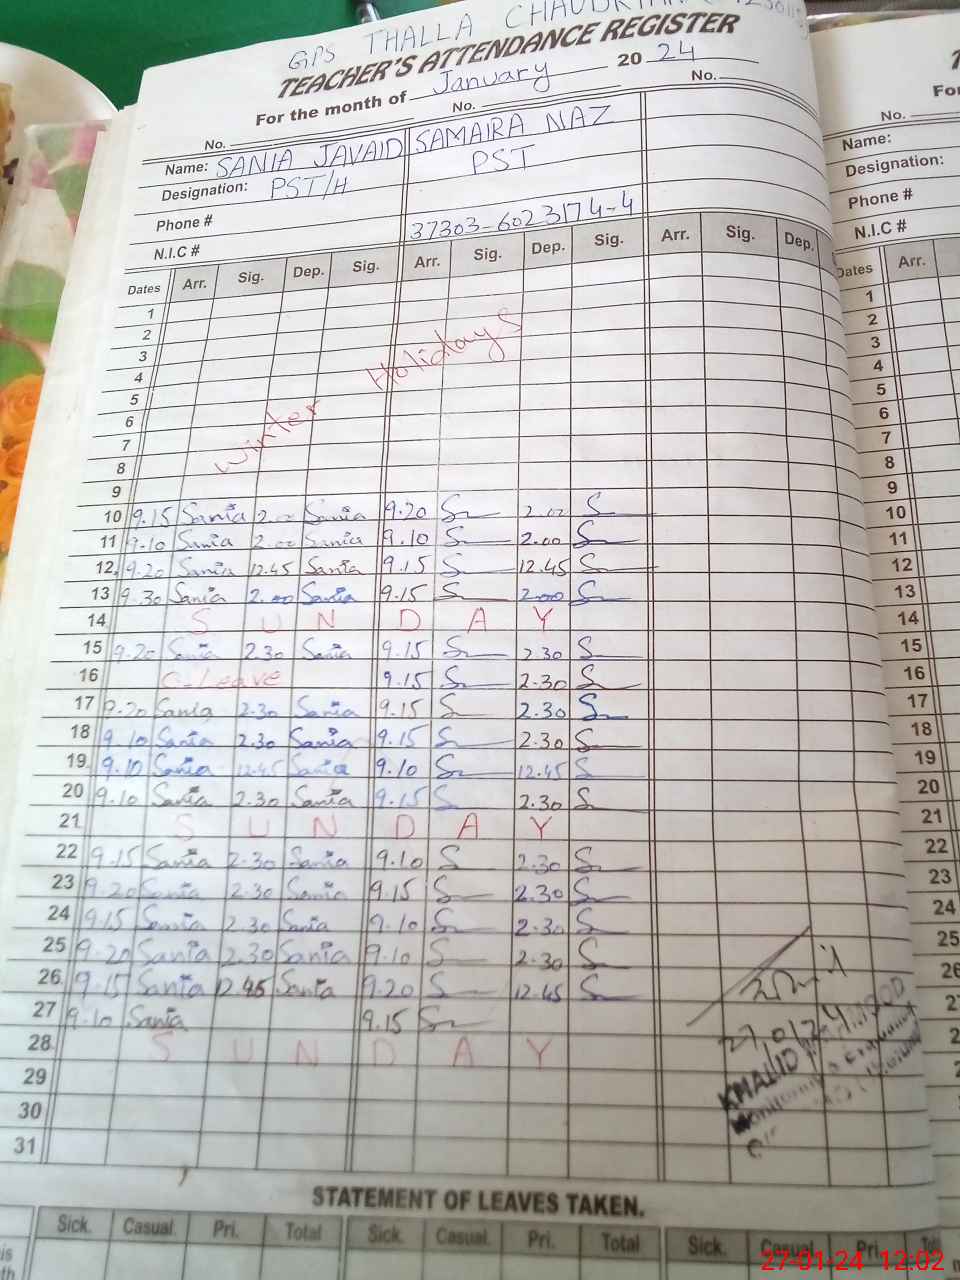 GPS THALLA
TEACHER'S ATTENDANCE REGISTER
For the month of January 20 24
No. No. No.
Name: SANIA JAVAID SAMAIRA NAZ
Designation: PST/H PST
Phone #
N.I.C # 37303-6023174-4
Dates Arr. Sig. Dep. Sig. Arr. Sig. Dep. Sig. Arr. Sig. Dep.
1
2
3
4
5
6
7
8
9
Winter Holidays
10 9.15 Sania 2.00 Sania 9.20 S 2.00 S
11 9.10 Sania 2.00 Sania 9.10 S 2.00 S
12 9.20 Sania 12.45 Sania 9.15 S 12.45 S
13 9.30 Sania 2.00 Sania 9.15 S 2.00 S
14 S U N D A Y
15 9.20 Sania 2.30 Sania 9.15 S 2.30 S
16 C-Leave 9.15 S 2.30 S
17 9.20 Sania 2.30 Sania 9.15 S 2.30 S
18 9.10 Sania 2.30 Sania 9.15 S 2.30 S
19 9.10 Sania 12.45 Sania 9.10 S 12.45 S
20 9.10 Sania 2.30 Sania 9.15 S 2.30 S
21 S U N D A Y
22 9.15 Sania 2.30 Sania 9.10 S 2.30 S
23 9.20 Sania 2.30 Sania 9.15 S 2.30 S
24 9.15 Sania 2.30 Sania 9.10 S 2.30 S
25 9.20 Sania 2.30 Sania 9.10 S 2.30 S
26 9.15 Sania 12.45 Sania 9.20 S 12.45 S
27 9.10 Sania 9.15 S
28 S U N D A Y
29
30
31
KHALID
STATEMENT OF LEAVES TAKEN.
Sick. Casual. Pri. Total Sick. Casual. Pri. Total Sick. Casual. Pri.
No.
Name:
Designation:
Phone #
N.I.C #
Dates Arr.
1
2
3
4
5
6
7
8
9
10
11
12
13
14
15
16
17
18
19
20
21
22
23
24
25
26
27-01-24 12:02